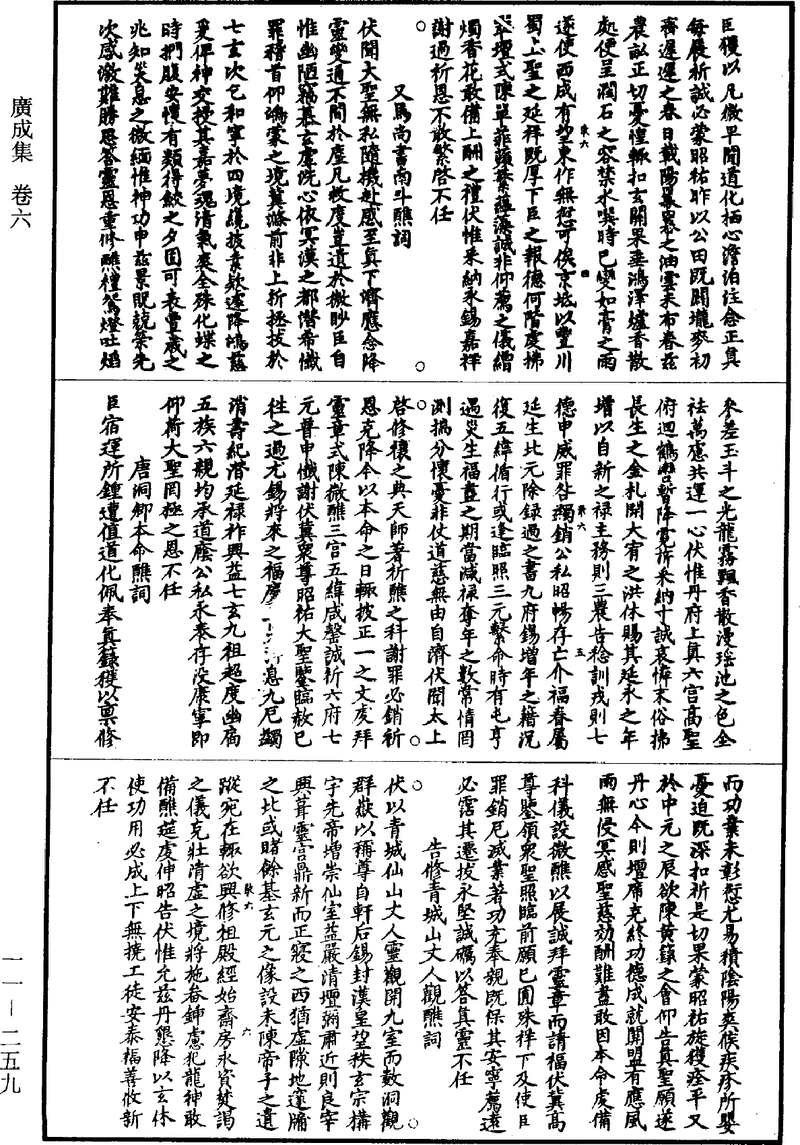 廣成集 卷六
臣獲以凡微早聞道化栖心澹泊注念正真
每展祈誠必蒙昭祐昨以公田既闢壠麥初
齊遲遲之春日載陽冪冪之油雲未布眷茲
農畝正切憂惶輒扣玄關果垂鴻澤爐香散
処便呈潤石之容禁水噀時已變如膏之雨
遂使西成有望東作無愆可俟京坻以豐川
蜀上聖之延祥既厚下臣之報德何階虔拂
華壇式陳單菲蘋蘩蘊藻誠非仰薦之儀繒
燭香花敢備上酬之禮伏惟釆納永錫嘉祥
謝過祈恩不敢繁啓不任
又馬尚書南斗醮詞
伏聞大聖無私隨機赴感至真下濟應念降
靈變通不間於塵凡救度豈遺於微眇臣自
惟幽陋竊慕玄虛洗心依冥漠之都潛希懺
罪稽首仰鴻蒙之境冀滌前非上祈拯拔於
七玄次乞和寧於四境纔披素欵遽降鴻慈
爰俾神交授其嘉夢魂清氣爽全殊化蝶之
時捫腹安懷有類得鮫之夕固可表豐歲之
兆知災息之徵緬惟神功申茲景貺兢榮先
次感激難勝思答靈恩重修醮禮鴛燈吐焰
参差玉斗之光龍霧飄香散漫瑤池之色全
祛萬慮共運一心伏惟丹府上真六宮高聖
俯迴鶴轡暫降霓旌釆納寸誠哀憐末俗拂
長生之金札開大宥之洪休賜其延永之年
增以自新之祿主務則三農告稔訓戎則七
德申威罪咎蠲銷公私昭暢存亡介福眷屬
延生北元除録過之書九府錫增年之籍況
復五緯循行或逢臨照三元繫命時有屯亨
遇災生福盡之期當減祿奪年之數常情罔
測揣分懷憂非仗道慈無由自濟伏聞太上
啓修禳之典天師著祈醮之科謝罪必銷祈
恩克降今以本命之日輒披正一之文虔拜
靈章式陳微醮三宮五緯咸罄誠祈六府七
元普申懺謝伏冀衆尊昭祐大聖鑒臨赦已
往之過尤錫將來之福慶息九厄蠲
消壽紀潛延祿祚興益七玄九祖超度幽扃
五族六親均承道廕公私永泰存没康寧即
仰荷大聖罔極之恩不任
唐洞卿本命醮詞
臣宿運所鍾遭值道化佩奉真籙獲以稟修
而功業未彰愆尤易積陰陽奕候疾疹所嬰
憂迫既深扣祈是切果蒙昭祐旋獲痊平又
於中元之辰欲陳黃籙之會仰告真聖願遂
丹心今則壇席克終功德成就開盟有應風
雨無侵冥感聖慈効酬難盡敢因本命虔備
科儀設微醮以展誠拜靈章而請福伏冀高
尊鑒領衆聖照臨前願已圓殊祥下及使臣
罪銷厄滅業著功充奉親既保其安寧薦遠
必霑其遷拔永堅誠礪以答真靈不任
告修青城山丈人觀醮詞
伏以青城仙山丈人靈觀開九室而敷洞觀
群嶽以稱尊自軒后錫封漢皇望秩玄宗構
宇先帝增崇仙室益嚴清壇彌肅近則良宰
興葺靈宫鼎新而正寢之西猶虛隙地邃牖
之北或睹餘基玄元之像設未陳帝子之遺
蹤宛在輒欲興修祖殿經始齋房永資焚謁
之儀克壯清虛之境將施畚鍤慮犯龍神敢
備醮筵虔伸昭告伏惟允茲丹懇降以玄休
使功用必成上下無撓工徒安泰福善攸新
不任
一一—二五九